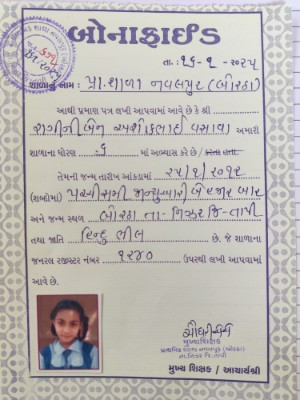 બોનાફાઈડ
તા. : ૧૬-૧-૨૦૨૫
શાળાનું નામ : પ્રા.શાળા નવલપુર (બોરઠા)
આથી પ્રમાણ પત્ર લખી આપવામાં આવે છે કે શ્રી
રાગીની બેન અશોકભાઈ વસાવા અમારી
શાળાના ધોરણ ૬ માં અભ્યાસ કરે છે / કરતા હતા.
તેમની જન્મ તારીખ આંકડામાં ૨૫/૧/૨૦૧૨
(શબ્દોમાં) પચ્ચીસમી જાન્યુઆરી બે હજાર બાર
અને જન્મ સ્થળ બોરઠા તા- નિઝર જિ-તાપી
તથા જાતિ હિન્દુ ભીલ છે. જે શાળાના
જનરલ રજીસ્ટર નંબર ૧૨૪૦ ઉપરથી લખી આપવામાં
આવે છે.
મુખ્યશિક્ષક
મુખ્ય શિક્ષક / આચાર્યશ્રી